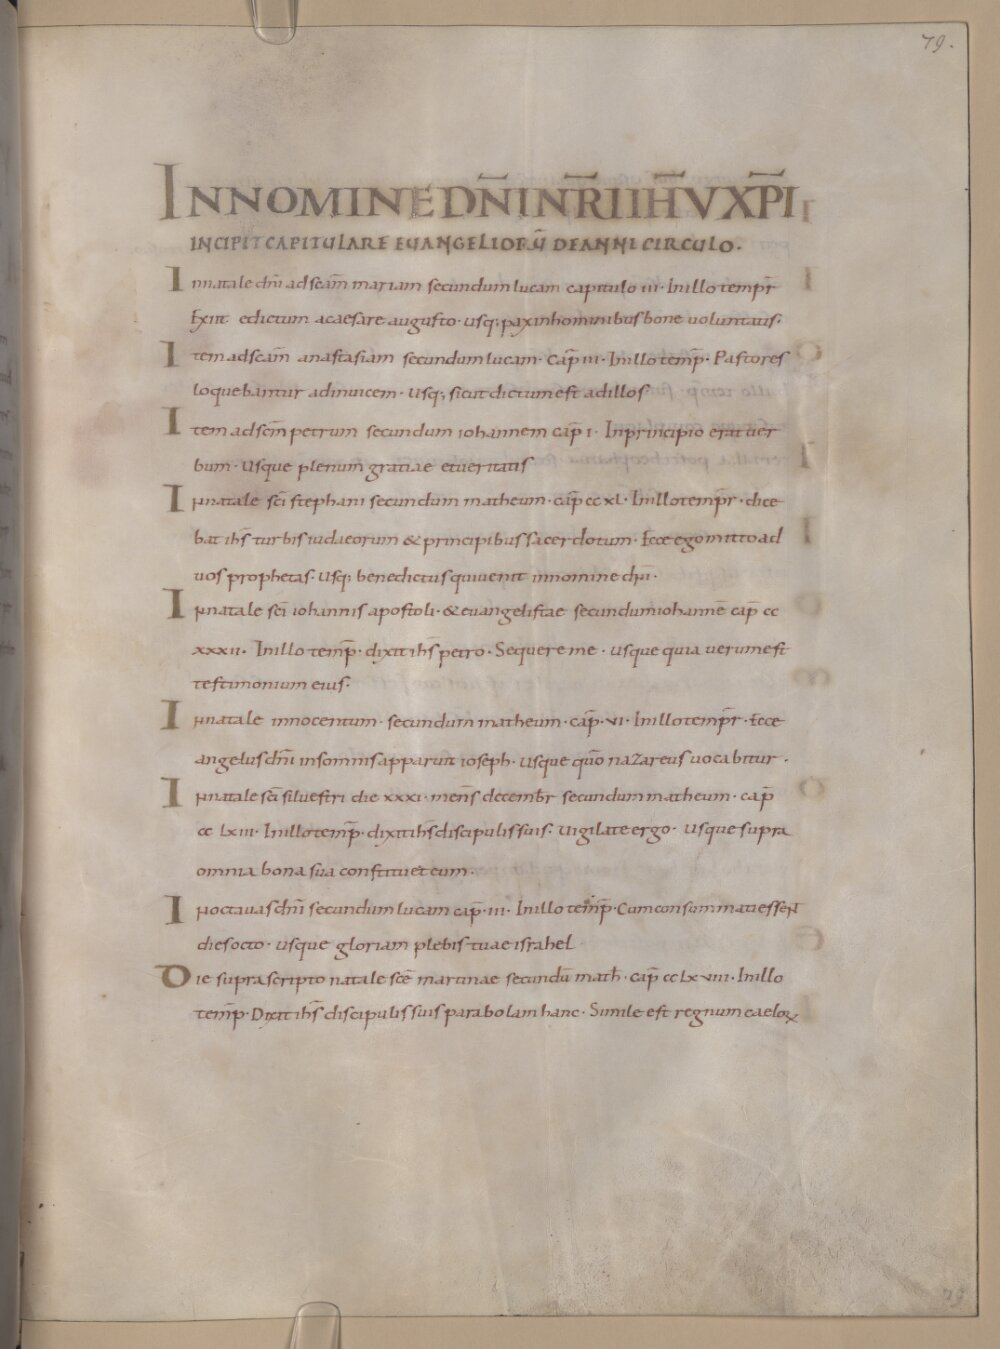 79.
IN NOMINE DN̄I NR̄I IH̄V XP̄I
INCIPIT CAPITULARE EUANGELIORŪ DE ANNI CIRCULO.
In natale dn̄i ad scām mariam secundum lucam capitulo iii· In illo tempr̄
Exiit edictum a caesare augusto· usq; pax in hominibus bone uoluntatis·
Item ad scām anastasiam secundum lucam· cap̄ iii· In illo temp̄· Pastores
loquebantur adinuicem· usq; sicut dictum est ad illos
Item ad scm̄ petrum secundum iohannem cap̄ i· In principio erat uer
bum· usque plenum gratiae et ueritatis
In natale sc̄i stephani secundum matheum· cap̄ cc xl· In illo tempr̄· dice
bat ih̄s turbis iudaeorum & principibus sacerdotum· Ecce ego mitto ad
uos prophetas· usq; benedictus qui uenit in nomine dn̄i·
In natale sc̄i iohannis apostoli· & euangelistae secundum iohannē cap̄ cc
xxxii· In illo temp̄· dixit ih̄s petro· Sequere me· usque quia uerum est
testimonium eius·
In natale innocentum· secundum matheum· cap̄· vi· In illo tempr̄· Ecce
angelus dn̄i in somnis apparuit ioseph· usque qūo nazareus uocabitur·
In natale sc̄i siluestri die xxxi· mens̄ decemb̄r secundum matheum· cap̄
cc lxiii· In illo temp̄· dixit ih̄s discipulis suis· uigilate ergo· usque supra
omnia bona sua constituet eum·
In octauas dn̄i secundum lucam cap̄· iii· In illo temp̄· Cum consummati essent
dies octo· usque gloriam plebis tuae israhel
Die suprascripto natale scē martinae secundū math̄· cap̄ cc lxviii· In illo
temp̄· Dixit ih̄s discipulis suis parabolam hanc· Simile est regnum caeloꝝ
79